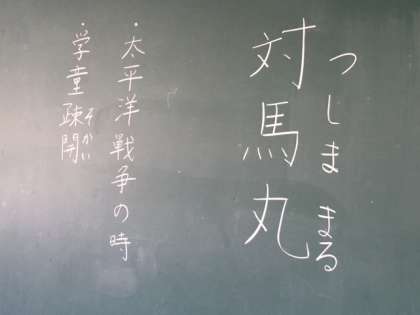 つしま まる
対馬丸
・太平洋戦争の時
・学童疎開
そかい